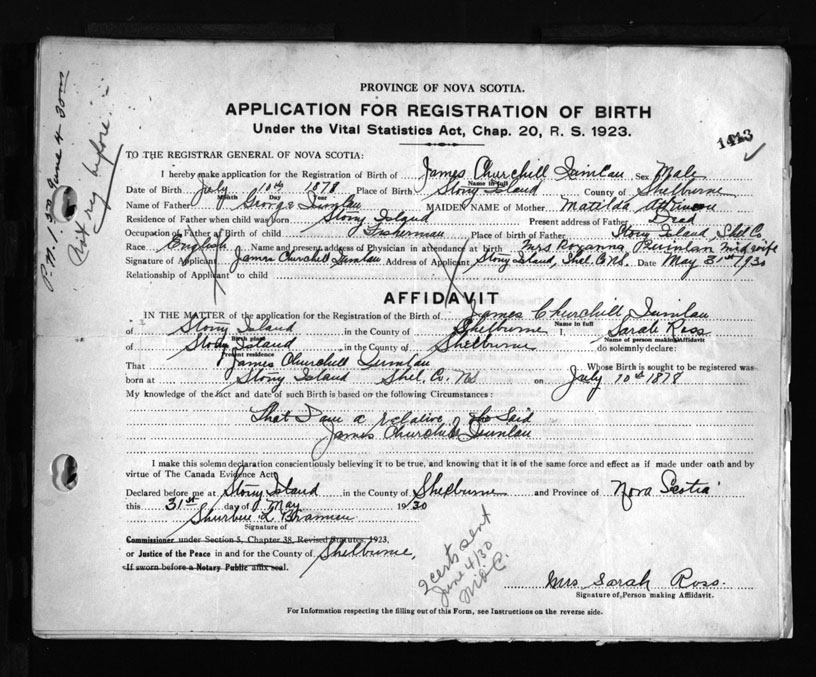 PROVINCE OF NOVA SCOTIA.
APPLICATION FOR REGISTRATION OF BIRTH
Under the Vital Statistics Act, Chap. 20, R. S. 1923.
1443
P.M. 1.50 June 4 30
before
TO THE REGISTRAR GENERAL OF NOVA SCOTIA:
I hereby make application for the Registration of Birth of James Churchill Sex Male
Name in full
Date of Birth July 10th 1878 Place of Birth Stony Island County of Shelburne
Month Day Year
Name of Father George MAIDEN NAME of Mother Matilda
Residence of Father when child was born Stony Island Present address of Father Dead
Occupation of Father at Birth of child Fisherman Place of Birth of Father Stony Island, Shel Co.
Race English Name and present address of Physician in attendance at birth Mrs Roxanna midwife
Signature of Applicant James Churchill Address of Applicant Stony Island, Shel. Co. NS. Date May 31st 1930
Relationship of Applicant to child
AFFIDAVIT
IN THE MATTER of the application for the Registration of the Birth of James Churchill
Name in full
of Stony Island in the County of Shelburne I, Sarah Ross
Birth place Name of person making Affidavit
of Stony Island in the County of Shelburne do solemnly declare:
Present residence
That James Churchill Whose Birth is sought to be registered was
born at Stony Island Shel. Co. NS on July 10th 1878
My knowledge of the fact and date of such Birth is based on the following Circumstances:
That I am a relative of the Said
James Churchill
I make this solemn declaration conscientiously believing it to be true, and knowing that it is of the same force and effect as if made under oath and by
virtue of The Canada Evidence Act.
Declared before me at Stony Island in the County of Shelburne and Province of Nova Scotia
this 31st day of May 1930
Signature of
Commissioner under Section 5, Chapter 38, Revised Statutes, 1923,
or Justice of the Peace in and for the County of Shelburne,
If sworn before a Notary Public affix seal.
2 certs sent
June 4/30
Mrs Sarah Ross.
Signature of Person making Affidavit.
For Information respecting the filling out of this Form, see Instructions on the reverse side.